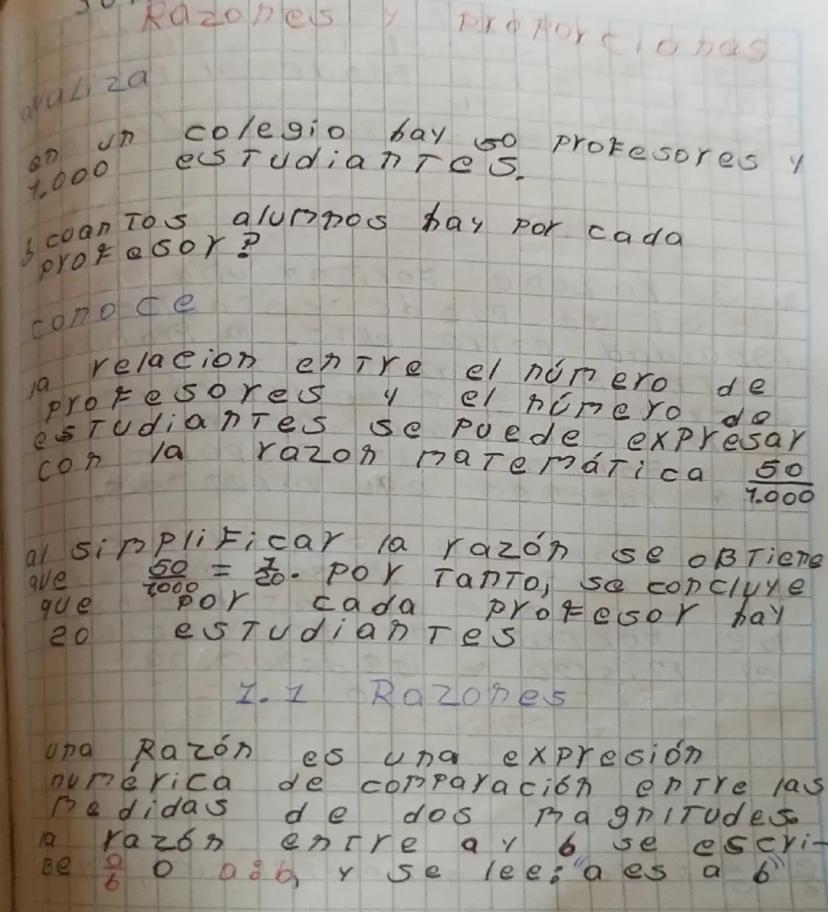 Razones y proporciones
analiza
en un colegio hay 50 profesores y
1.000 estudiantes.
¿cuantos alumnos hay por cada
profesor?
conoce
la relacion entre el número de
profesores y el número de
estudiantes se puede expresar
con la razon matemática 50/1.000
al simplificar la razón se obtiene
que 50/1000 = 1/20. por tanto, se concluye
que por cada profesor hay
20 estudiantes
1.1 Razones
una Razón es una expresión
numérica de comparación entre las
medidas de dos magnitudes.
la razón entre a y b se escri-
be a/b o a:b, y se lee: "a es a b"